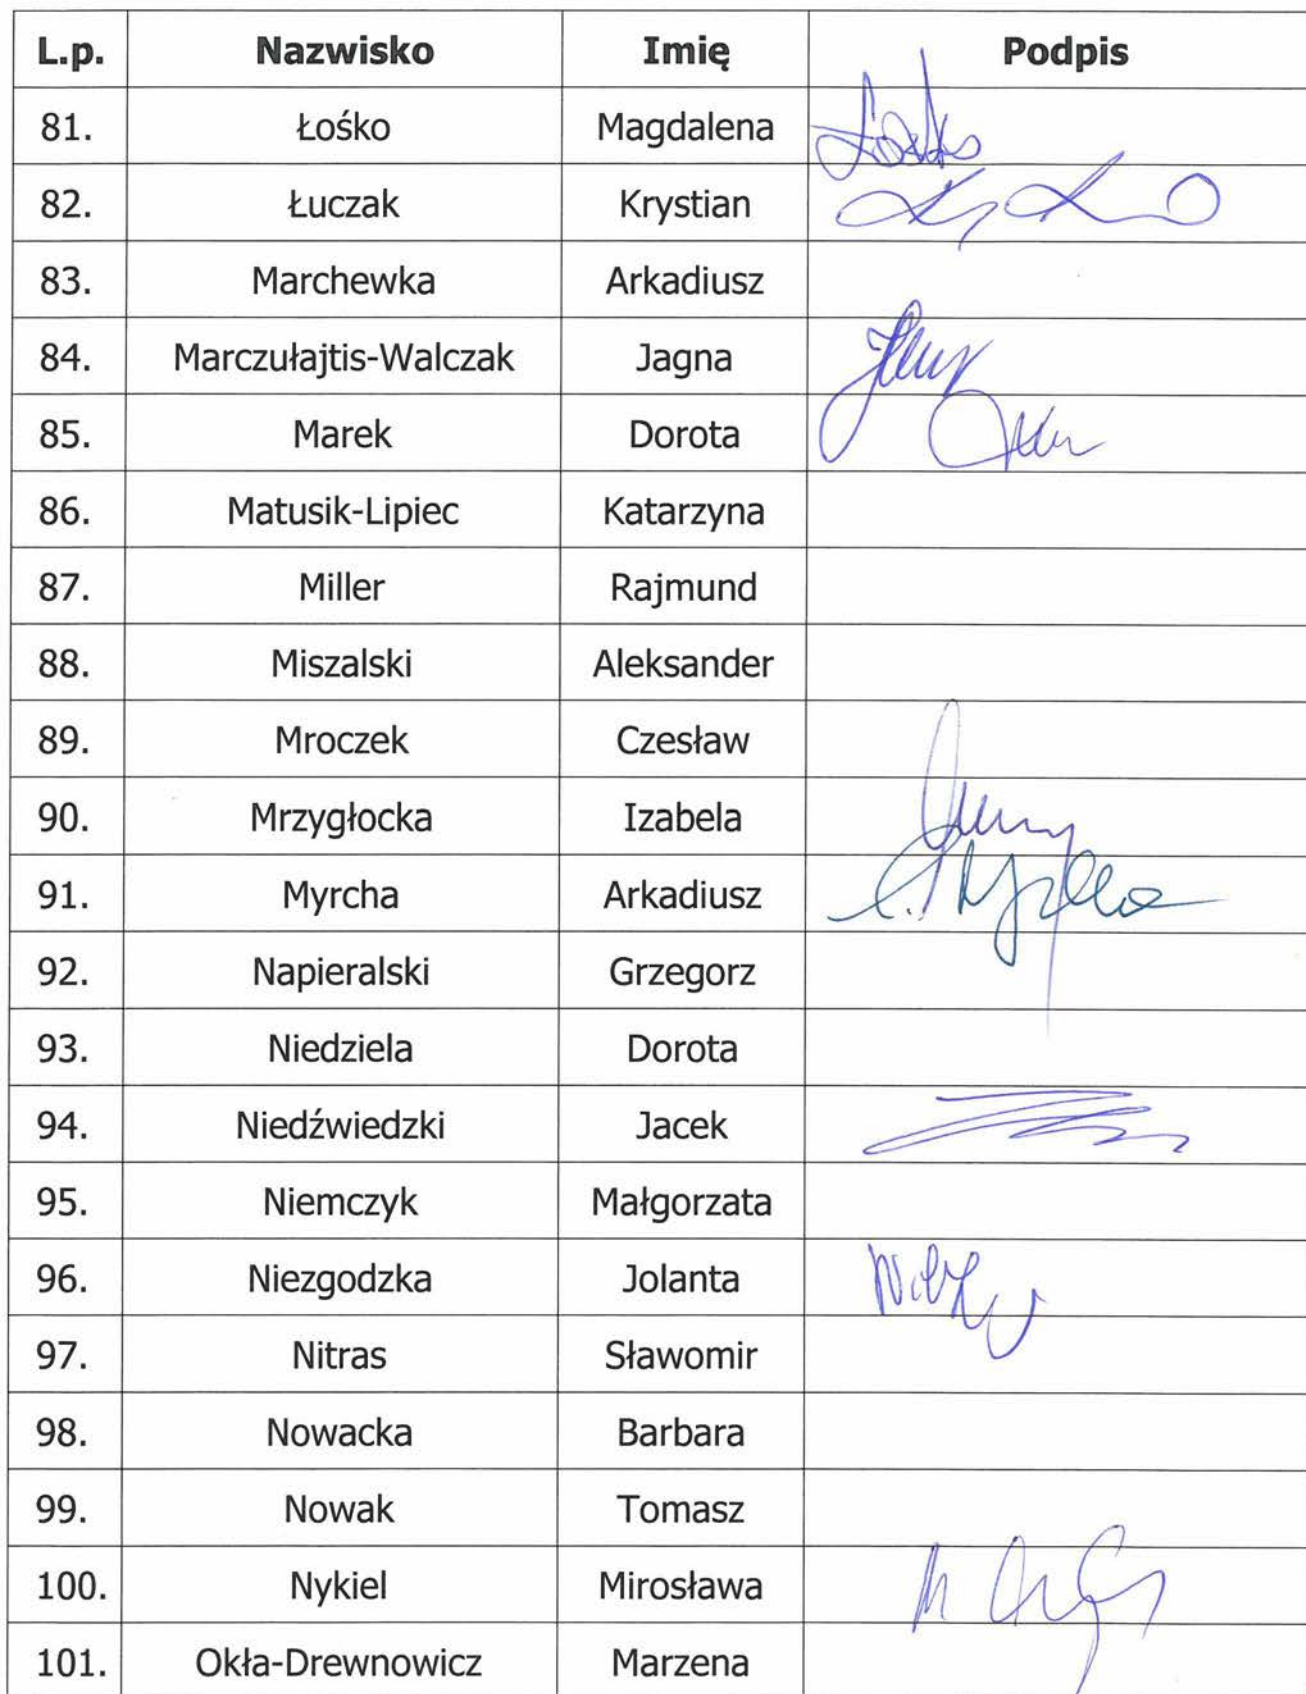 L.p. Nazwisko Imię Podpis
81. Łośko Magdalena
82. Łuczak Krystian
83. Marchewka Arkadiusz
84. Marczułajtis-Walczak Jagna
85. Marek Dorota
86. Matusik-Lipiec Katarzyna
87. Miller Rajmund
88. Miszalski Aleksander
89. Mroczek Czesław
90. Mrzygłocka Izabela
91. Myrcha Arkadiusz
92. Napieralski Grzegorz
93. Niedziela Dorota
94. Niedźwiedzki Jacek
95. Niemczyk Małgorzata
96. Niezgodzka Jolanta
97. Nitras Sławomir
98. Nowacka Barbara
99. Nowak Tomasz
100. Nykiel Mirosława
101. Okła-Drewnowicz Marzena